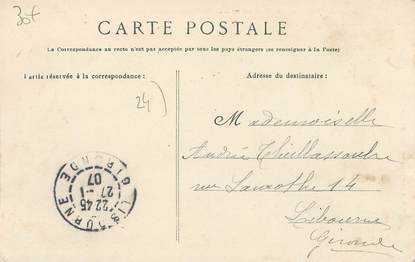 30f
CARTE POSTALE
La Correspondance au recto n'est pas acceptée par tous les pays étrangers (se renseigner à la Poste)
Partie réservée à la correspondance :
Adresse du destinataire :
24)
Mademoiselle
Andrée
rue 14
Libourne
Gironde
LIBOURNE GIRONDE
22 45
27 -1
07